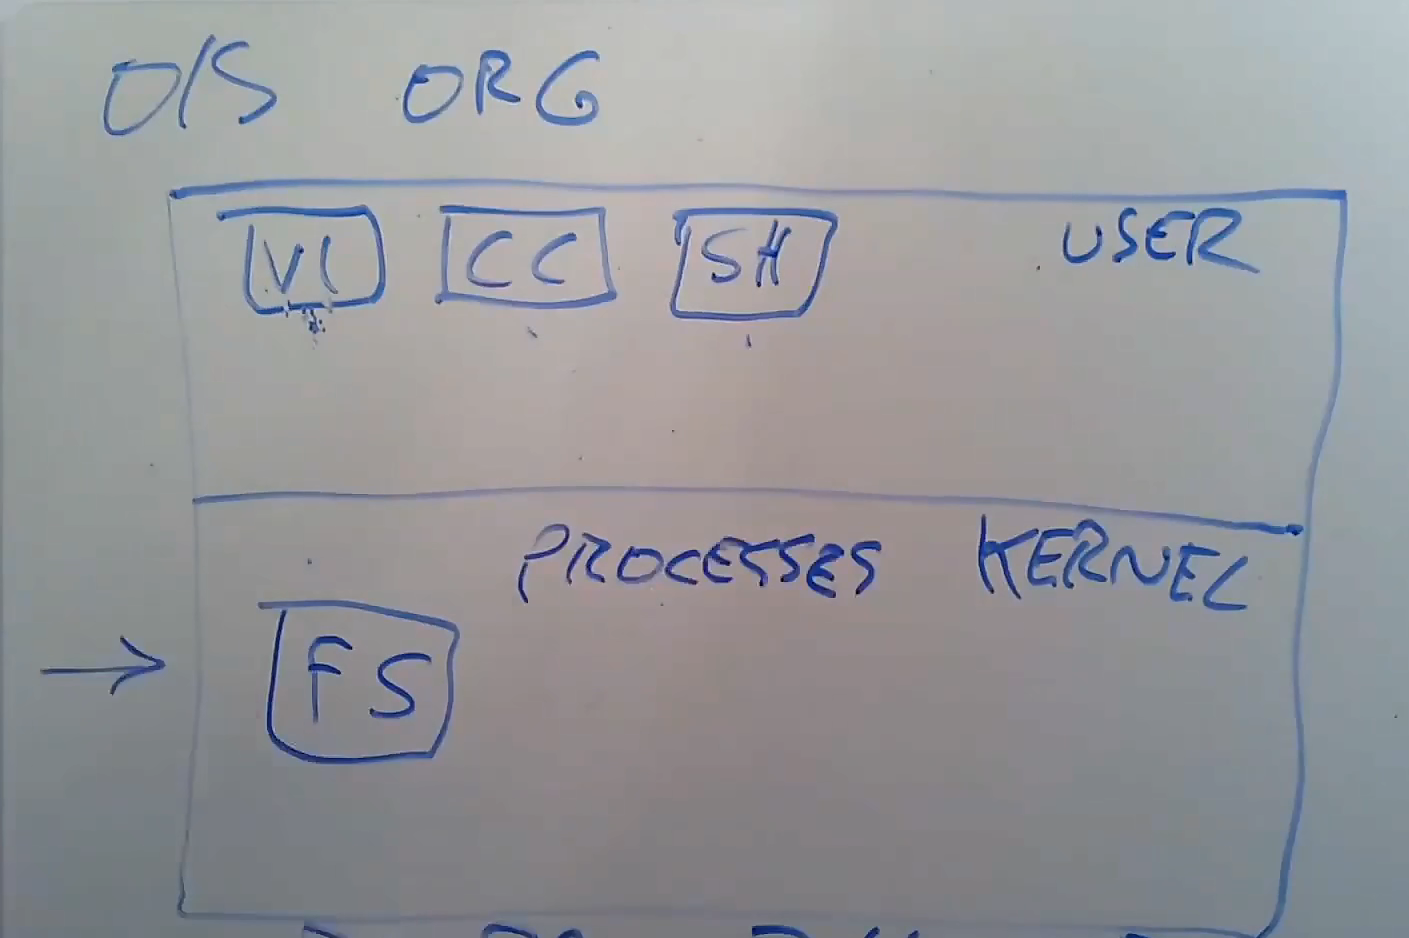 O/S ORG
VI CC SH USER
PROCESSES KERNEL
FS